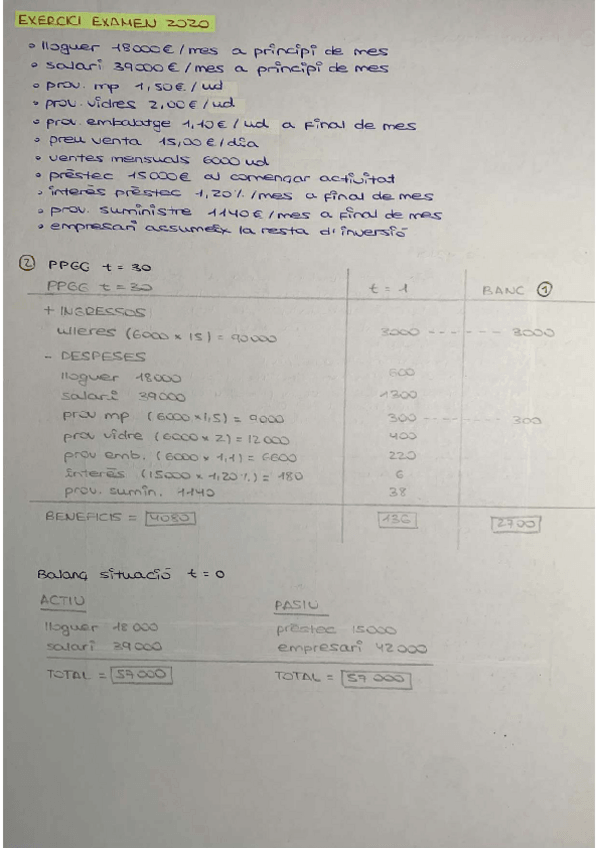 EXERCICI EXAMEN 2020
• lloguer 18000€/mes a principi de mes
• salari 39000€/mes a principi de mes
• prov. mp 1,50€/ud
• prov. vidres 2,00€/ud
• prov. embalatge 1,10€/ud a final de mes
• preu venta 15,00€/dia
• ventes mensuals 6000 ud
• préstec 15000€ al començar activitat
• interès préstec 1,20%/mes a final de mes
• prov. suministre 1140€/mes a final de mes
• empresari assumeix la resta d'inversió
② PPGG t=30
PPGG t=30 t=1 BANC ①
+ INGRESSOS
ulleres (6000 x 15) = 90000 3000 ------ 3000
- DESPESES
lloguer 18000 600
salari 39000 1300
prov mp (6000 x 1,5) = 9000 300 ------ 300
prov vidre (6000 x 2) = 12000 400
prov emb. (6000 x 1,1) = 6600 220
interès (15000 x 1,20%) = 180 6
prov. sumin. 1140 38
BENEFICIS = 4080 136 2700
Balanç situació t=0
ACTIU PASIU
lloguer 18000 préstec 15000
salari 39000 empresari 42000
TOTAL = 57000 TOTAL = 57000